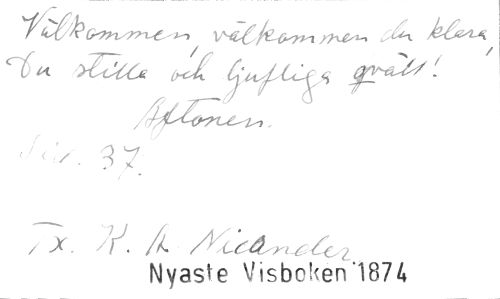 Välkommen, välkommen du klara,
Du stilla och ljufliga qväll!
Aftonen.
Sid. 37.
Tx. K. A. Nicander
Nyaste Visboken 1874